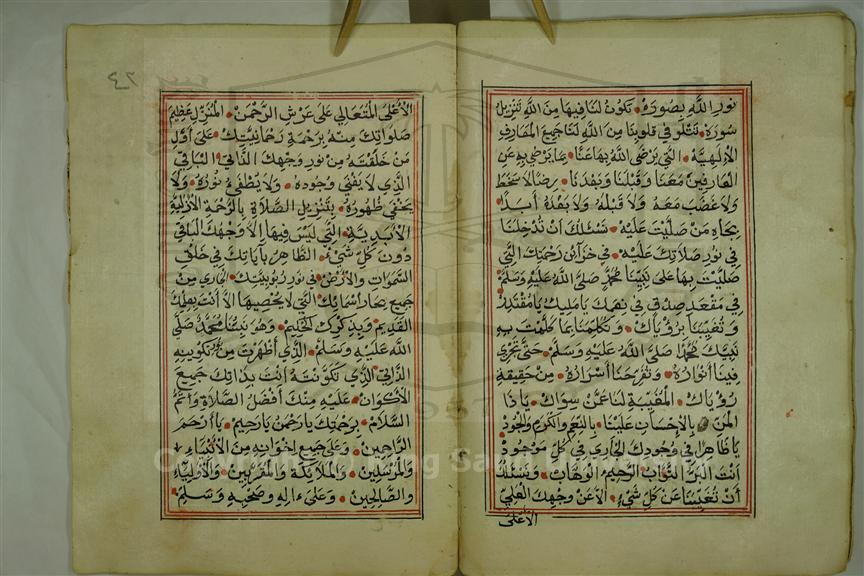 نور الله بصورة تكون لنا فيها من الله تنزيل
سورة نتلو في قلوبنا من الله لنا جميع المعارف
الإلهية التي يرضى الله بها عنا بما يرضى به عن
العارفين معنا وقبلنا وبعدنا رضا لا سخط
ولا غضب معه ولا قبله ولا بعده أبدا
بجاه من صليت عليه نسئلك أن تدخلنا
في نور صلاتك عليه في خزآئن رحمتك التي
صليت بها على نبينا محمد صلى الله عليه وسلم
في مقعد صدق في نعمك يا مليك يا مقتدر
وتغيبنا برؤياك وتكلمنا بما كلمت به
نبيك محمدا صلى الله عليه وسلم حتى تجري
فينا أنواره وتفرحنا أسراره من حقيقة
رؤياك المغيبة لنا عمن سواك يا ذا
المن بالإحساب علينا بالنعم والكرم والجود
يا ظاهرا في وجودك الجاري في كل موجود
أنت البر التواب الرحيم الوهاب ونسئلك
أن تغيبنا عن كل شيء إلا عن وجهك العلي
الأعلى
٤٢
الأعلى المتعالي على عرش الرحمن المنزل عظيم
صلواتك منه برحمة رحمانيتك على أول
من خلقته من نور وجهك الذاتي الباقي
الذي لا يفنى وجوده ولا يطفىء نوره ولا
يخفى ظهوره بتنزيل الصلاة بالرحمة الأزلية
الأبدية التي ليس فيها إلا وجهك الباقي
دون كل شيء الظاهر بآياتك في خلق
السموات والأرض في نور ربوبيتك الجاري من
جميع بحار اسمائك التي لا يحصيها إلا أنت بعلمك
القديم وبذكرك الحكيم وهو نبينا محمد صلى
الله عليه وسلم الذي أظهرت من نور تكوينه
الذاتي الذي تكونته أنت بذاتك جميع
الأكوان عليه منك أفضل الصلاة وأتم
السلام برحمتك يا رحمن يا رحيم يا أرحم
الراحمين وعلى جميع إخوانه من الأنبياء
والمرسلين والملآئكة والمقربين والأولياء
والصالحين وعلى ءاله وصحبه وسلم